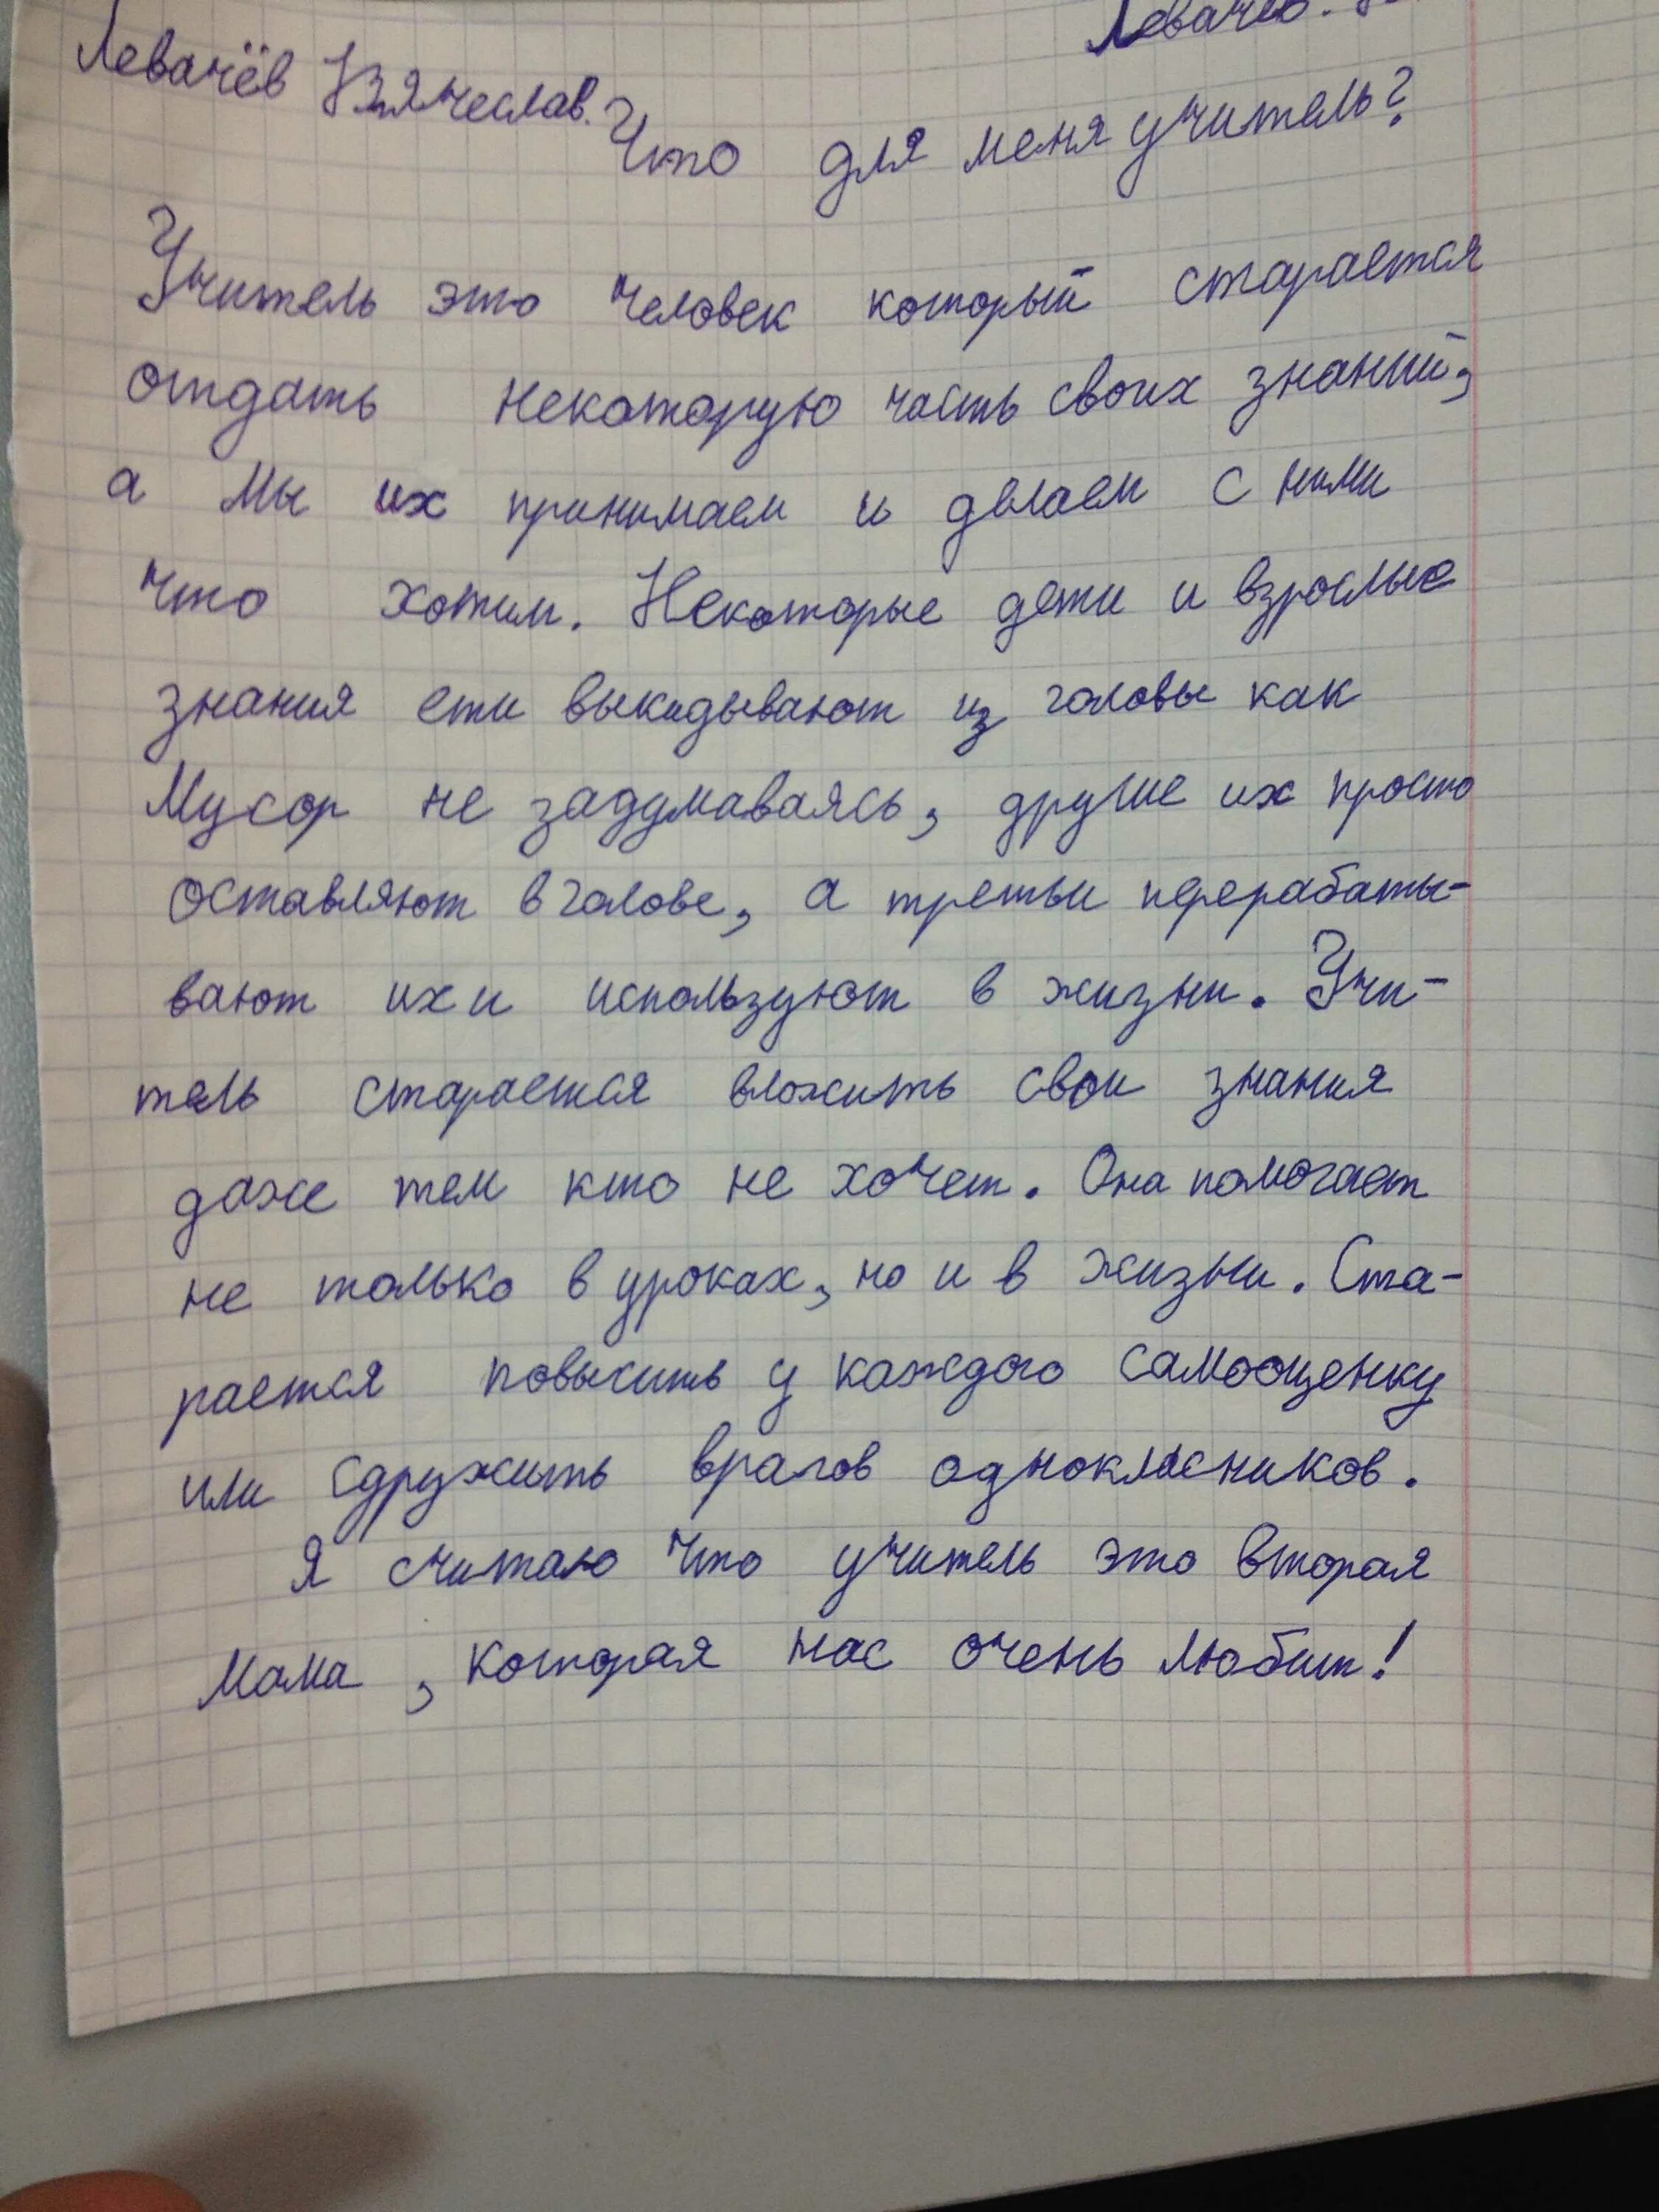 Левачёв.
Левачёв Вячеслав.
Что для меня учитель?
Учитель это человек который старается
отдать некоторую часть своих знаний,
а мы их принимаем и делаем с ними
что хотим. Некоторые дети и взрослые
знания ети выкидывают из головы как
Мусор не задумаваясь, другие их просто
оставляют в голове, а третьи перерабаты-
вают их и используют в жизни. Учи-
тель старается вложить свои знания
даже тем кто не хочет. Она помогает
не только в уроках, но и в жизни. Ста-
рается повысить у каждого самооценку
или сдружить врагов однокласников.
Я считаю что учитель это вторая
мама, которая нас очень любит!